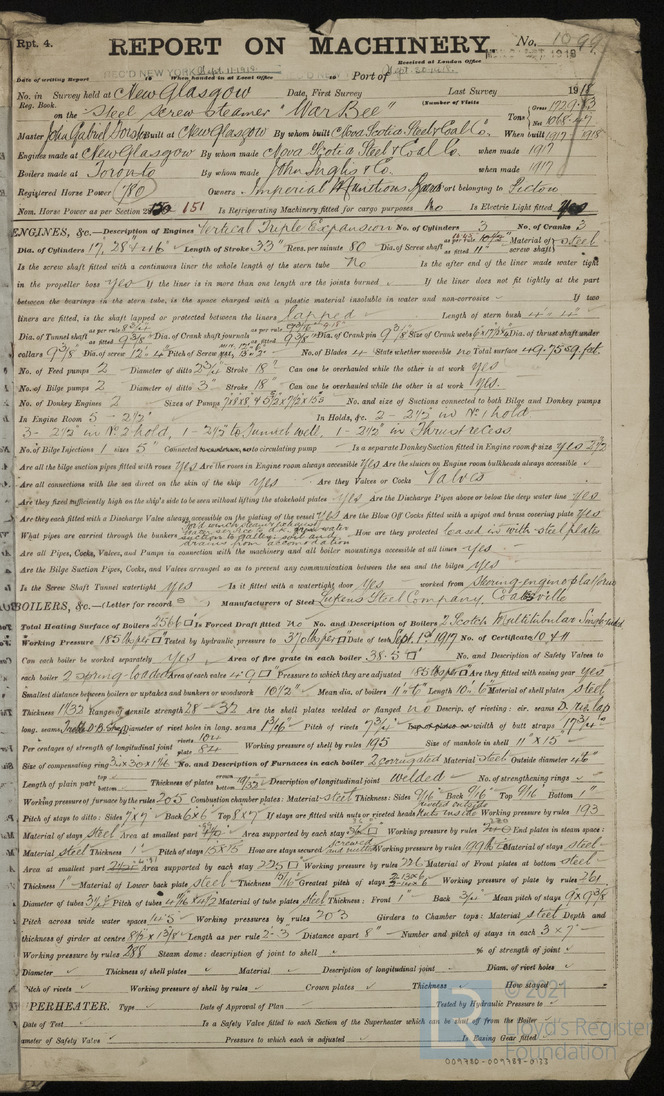 Rpt. 4.
REPORT ON MACHINERY
No. 1099
Received at London Office
Date of writing Report When handed in at Local Office Port of
REC'D NEW YORK Sept. 11. 1918
No. in Survey held at New Glasgow Date, First Survey Last Survey 1918
Reg. Book. (Number of Visits
on the Steel Screw Steamer "War Bee" Tons Gross 1729.83 Net 1068.47
Master John Gabriel Built at New Glasgow By whom built Nova Scotia Steel & Coal Co. When built 1917-1918
Engines made at New Glasgow By whom made Nova Scotia Steel & Coal Co. when made 1917
Boilers made at Toronto By whom made John Inglis & Co. when made 1917
Registered Horse Power 180 Owners Imperial Munitions Board Port belonging to Pictou
Nom. Horse Power as per Section 28 151 Is Refrigerating Machinery fitted for cargo purposes No Is Electric Light fitted Yes
ENGINES, &c.—Description of Engines Vertical Triple Expansion No. of Cylinders 3 No. of Cranks 3
Dia. of Cylinders 17, 28 & 46" Length of Stroke 33" Revs. per minute 80 Dia. of Screw shaft as per rule as fitted 11" Material of screw shaft steel
Is the screw shaft fitted with a continuous liner the whole length of the stern tube No Is the after end of the liner made water tight
in the propeller boss yes If the liner is in more than one length are the joints burned If the liner does not fit tightly at the part
between the bearings in the stern tube, is the space charged with a plastic material insoluble in water and non-corrosive If two
liners are fitted, is the shaft lapped or protected between the liners Lapped Length of stern bush 4'-4"
Dia. of Tunnel shaft as per rule as fitted 9 3/8" Dia. of Crank shaft journals as per rule as fitted 9 3/8" Dia. of Crank pin 9 3/8" Size of Crank webs Dia. of thrust shaft under
collars 9 3/8" Dia. of screw 12'-4" Pitch of Screw No. of Blades 4 State whether moveable no Total surface 49.75 sq. feet
No. of Feed pumps 2 Diameter of ditto 2 3/4" Stroke 18" Can one be overhauled while the other is at work yes
No. of Bilge pumps 2 Diameter of ditto 3" Stroke 18" Can one be overhauled while the other is at work yes.
No. of Donkey Engines 2 Sizes of Pumps No. and size of Suctions connected to both Bilge and Donkey pumps
In Engine Room 5 - 2 1/2" In Holds, &c. 2 - 2 1/2" in No 1 hold
3 - 2 1/2" in No 2 hold, 1 - 2 1/2" to Tunnel well, 1 - 2 1/2" in Thrust recess
No. of Bilge Injections 1 sizes 5" Connected to circulating pump Is a separate Donkey Suction fitted in Engine room & size yes 2 1/2
Are all the bilge suction pipes fitted with roses yes Are the roses in Engine room always accessible yes Are the sluices on Engine room bulkheads always accessible
Are all connections with the sea direct on the skin of the ship yes Are they Valves or Cocks Valves
Are they fixed sufficiently high on the ship's side to be seen without lifting the stokehold plates yes Are the Discharge Pipes above or below the deep water line yes
Are they each fitted with a Discharge Valve always accessible on the plating of the vessel yes Are the Blow Off Cocks fitted with a spigot and brass covering plate yes
What pipes are carried through the bunkers How are they protected Cased in with steel plates
Are all Pipes, Cocks, Valves, and Pumps in connection with the machinery and all boiler mountings accessible at all times yes
Are the Bilge Suction Pipes, Cocks, and Valves arranged so as to prevent any communication between the sea and the bilges yes
Is the Screw Shaft Tunnel watertight yes Is it fitted with a watertight door yes worked from
BOILERS, &c.—(Letter for record S) Manufacturers of Steel Lukens Steel Company, Coatesville
Total Heating Surface of Boilers 2566 Is Forced Draft fitted no No. and Description of Boilers 2 Scotch Multitubular Single-ended
Working Pressure 185 lbs per Tested by hydraulic pressure to 370 lbs per Date of test Sept. 1st 1917 No. of Certificate 10 & 11
Can each boiler be worked separately yes Area of fire grate in each boiler 38.5 No. and Description of Safety Valves to
each boiler 2 spring-loaded Area of each valve 4.90" Pressure to which they are adjusted 185 lbs per Are they fitted with easing gear yes
Smallest distance between boilers or uptakes and bunkers or woodwork 10 1/2" Mean dia. of boilers 11'-6" Length 10'-6" Material of shell plates steel
Thickness 1 1/32 Range of tensile strength 28-32 Are the shell plates welded or flanged no Descrip. of riveting: cir. seams D. R. lap
long. seams Treble D.B. Strap Diameter of rivet holes in long. seams 1 1/16" Pitch of rivets 7 3/4" Lap of plates or width of butt straps 17 3/4"
Per centages of strength of longitudinal joint rivets 102 plate 84 Working pressure of shell by rules 195 Size of manhole in shell 11" x 15"
Size of compensating ring No. and Description of Furnaces in each boiler 2 corrugated Material steel Outside diameter 46"
Length of plain part top bottom Thickness of plates crown bottom 19/32" Description of longitudinal joint welded No. of strengthening rings
Working pressure of furnace by the rules 205 Combustion chamber plates: Material steel Thickness: Sides 9/16" Back 9/16" Top 9/16" Bottom 1"
Pitch of stays to ditto: Sides 7x7 Back 6x6 Top 8x7 If stays are fitted with nuts or riveted heads Working pressure by rules 193
Material of stays steel Area at smallest part Area supported by each stay Working pressure by rules End plates in steam space:
Material steel Thickness 1" Pitch of stays 15x15 How are stays secured Working pressure by rules Material of stays steel
Area at smallest part Area supported by each stay 225 Working pressure by rules 226 Material of Front plates at bottom steel
Thickness 1" Material of Lower back plate steel Thickness 13/16" Greatest pitch of stays 13x6 Working pressure of plate by rules 261
Diameter of tubes 3 1/2" Pitch of tubes Material of tube plates steel Thickness: Front 1" Back 3/4" Mean pitch of stays 9x9 3/8
Pitch across wide water spaces 14.5 Working pressures by rules 203 Girders to Chamber tops: Material steel Depth and
thickness of girder at centre 8 1/2 x 1 3/8 Length as per rule 2'-3" Distance apart 8" Number and pitch of stays in each 3 x 7"
Working pressure by rules 288 Steam dome: description of joint to shell % of strength of joint
Diameter Thickness of shell plates Material Description of longitudinal joint Diam. of rivet holes
Pitch of rivets Working pressure of shell by rules Crown plates Thickness How stayed
UPERHEATER. Type Date of Approval of Plan Tested by Hydraulic Pressure to
Date of Test Is a Safety Valve fitted to each Section of the Superheater which can be shut off from the Boiler
ameter of Safety Valve Pressure to which each is adjusted Is Easing Gear fitted
© 2021
Lloyd's Register
Foundation
009780-009788-0133